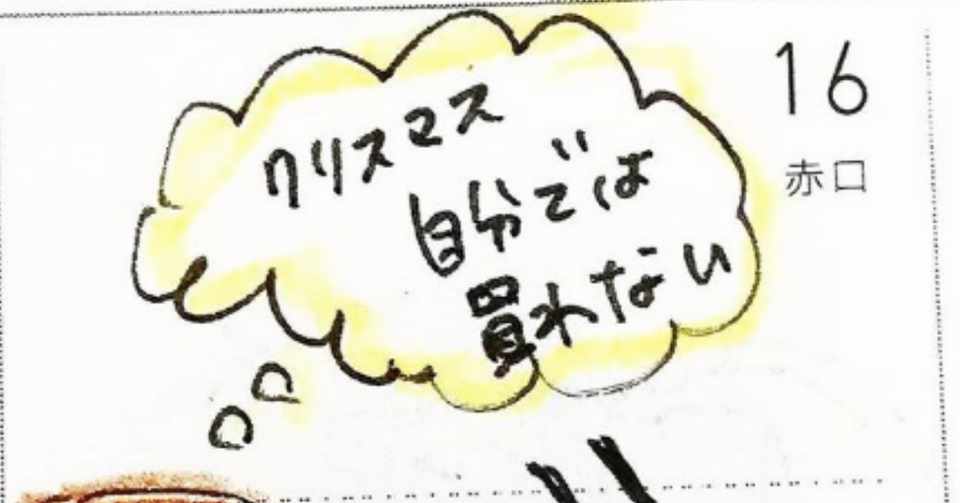 16
赤口
クリスマス
自分では
買れない